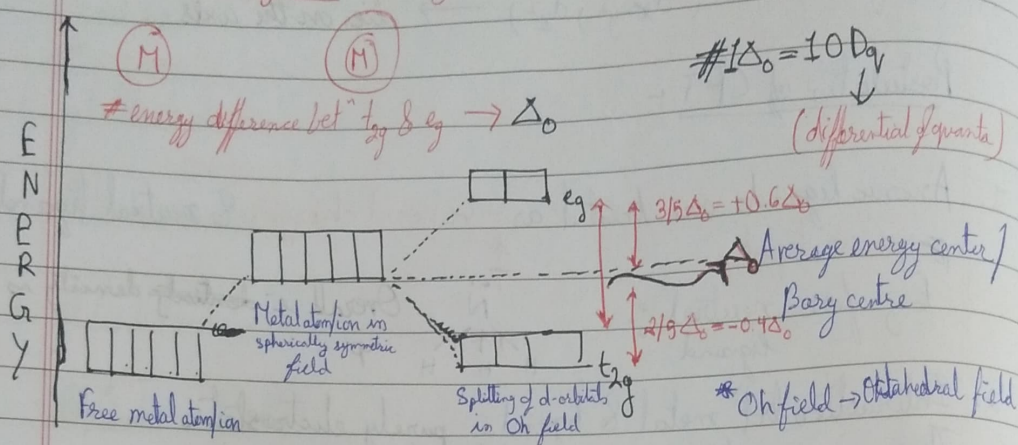 M
M
#1Δ₀ = 10 Dq
# energy difference betⁿ t2g & eg → Δ₀
(differential of quanta)
ENERGY
eg
3/5Δ₀ = +0.6Δ₀
Δ₀ Average energy center/
Bary centre
Metal atom/ion in
spherically symmetric
field
= -0.4Δ₀
t2g
Free metal atom/ion
Splitting of d-orbitals
in Oh field
* Oh field → Octahedral field